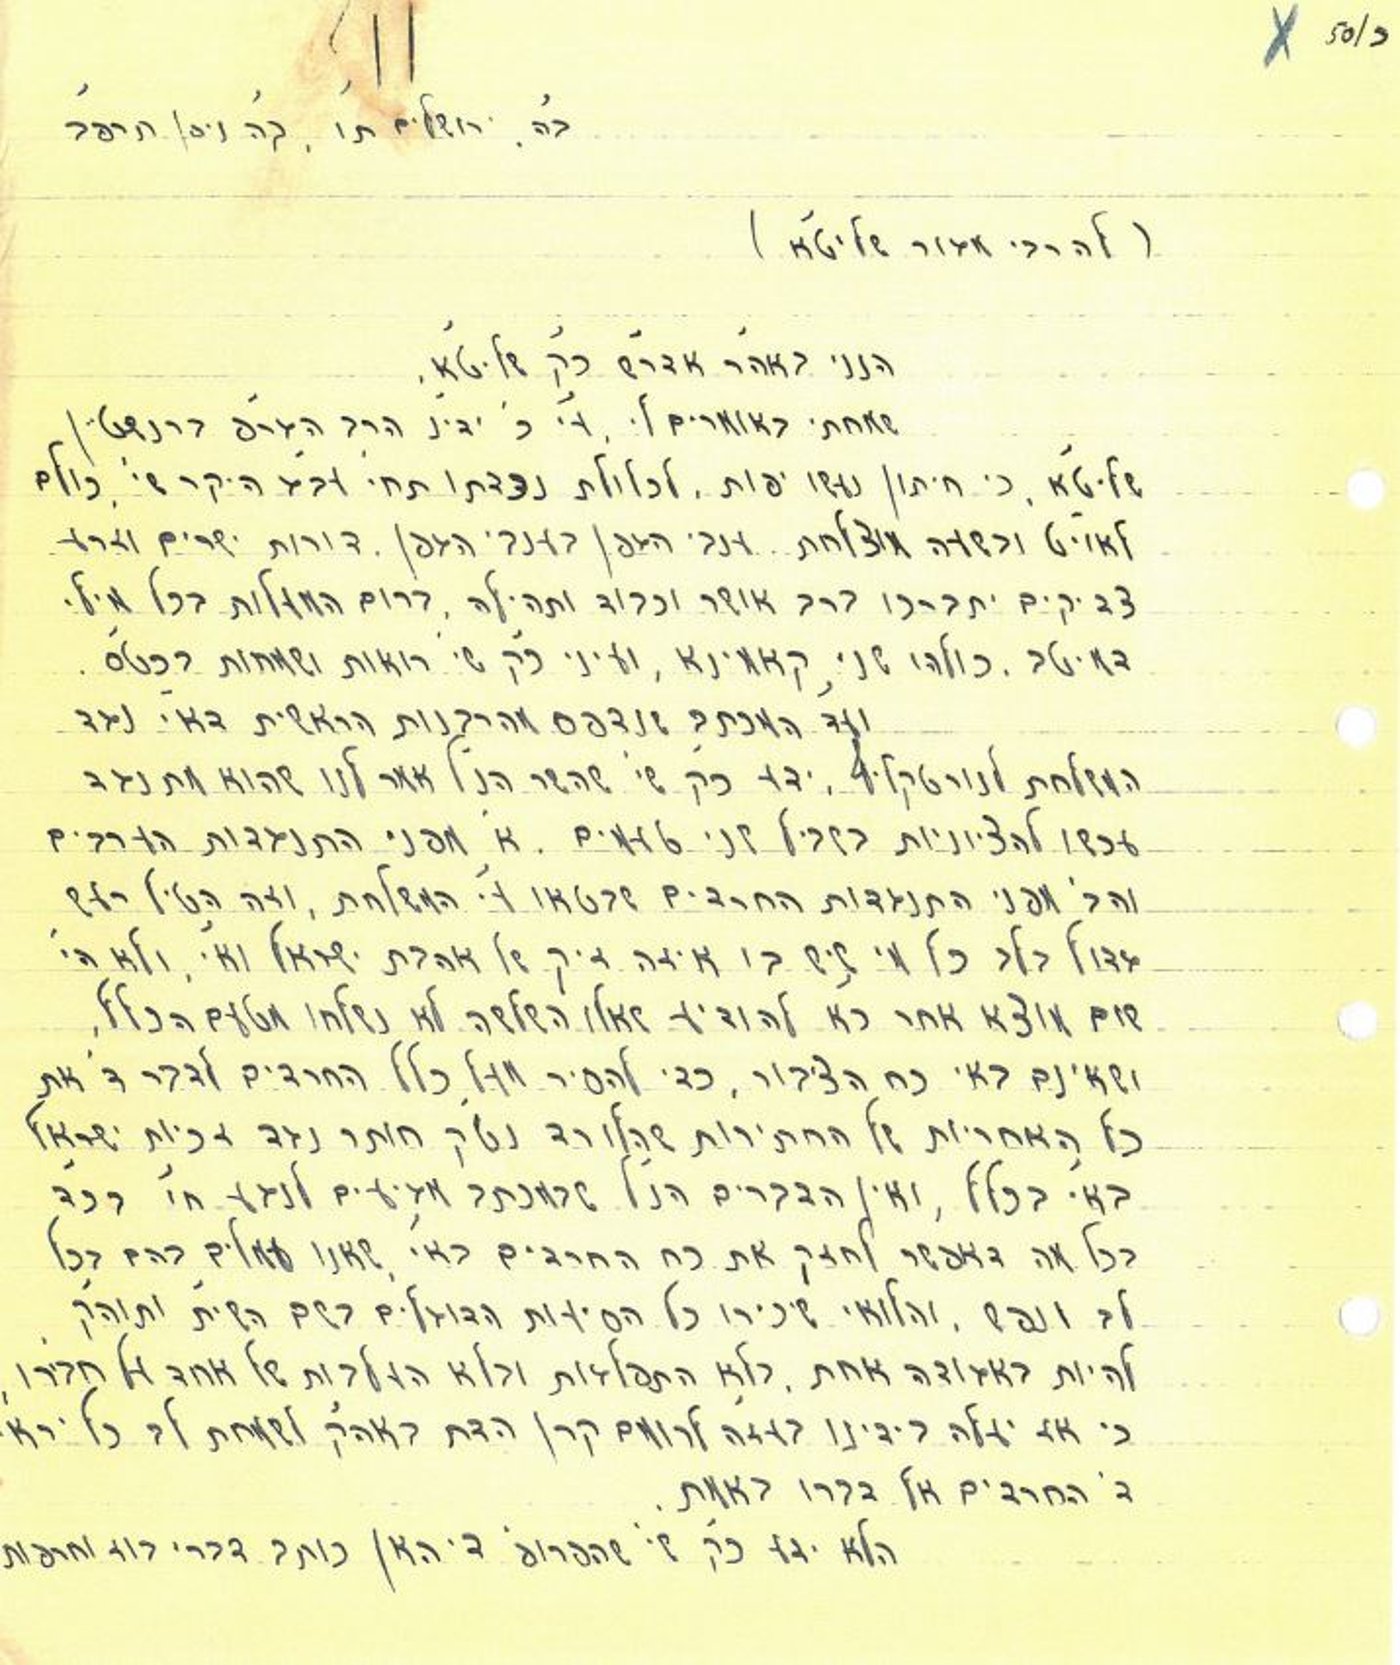 50/כ
ב"ה, ירושלים ת"ו, כ"ה ניסן תרפ"ב
(להרבי מגור שליט"א)
הנני באה"ר אדר"ש כ"ק שליט"א,
שמחתי באומרים לי, ע"י כ' ידי"נ הרב הגר"פ ברנשטין
שליט"א, כי חיתון נעשו יפות, לכלולת נכדתו תחי' עב"ג היקר שי', כולם
לאוי"ט ובשעה מוצלחת. ענבי הגפן בענבי הגפן. דורות ישרים וזרע
צדיקים יתברכו ברב אושר וכבוד ותהילה, ברום המעלות בכל מילי
דמיטב. כולהו שני קאמינא, ועיני כ"ק שי' רואות ושמחות בכט"ס.
וע"ד המכתב שנדפס מהרבנות הראשית דא"י נגד
המשלחת לנורטקליף, ידע כ"ק שי' שהשר הנ"ל אמר לנו שהוא מתנגד
עכשו להציוניות בשביל שני טעמים. א' מפני התנגדות הערבים
והב' מפני התנגדות החרדים שבטאו ע"י המשלחת, וזה הטיל רעש
גדול בלב כל מי שיש בו איזה זיק של אהבת ישראל וא"י, ולא הי'
שום מוצא אחר כ"א להודיע שאלו השלשה לא נשלחו מטעם הכלל,
ושאינם באי כח הציבור, כדי להסיר מעל כלל החרדים לדבר ד' את
כל האחריות של החתירות שהלורד נט"ק חותר נגד זכיות ישראל
בא"י בכלל, ואין הדברים הנ"ל שבמכתב מגיעים לנגע ח"ו בכ"ד
בכל מה דאפשר לחזק את כח החרדים בא"י, שאנו עמלים בהם בכל
לב ונפש, והלואי שיכירו כל הסיעות הדוגלים בשם השי"ת ותוה"ק,
להיות באגודה אחת, בלא התפלגות ובלא העלבות של אחד על חבירו,
כי אז יעלה בידינו בעזה"י לרומם קרן הדת באה"ק ולשמחת לב כל יראי
ד' החרדים אל דברו באמת.
הלא ידע כ"ק שי' שהפרופ' די האן כותב דברי בוז וחרפות